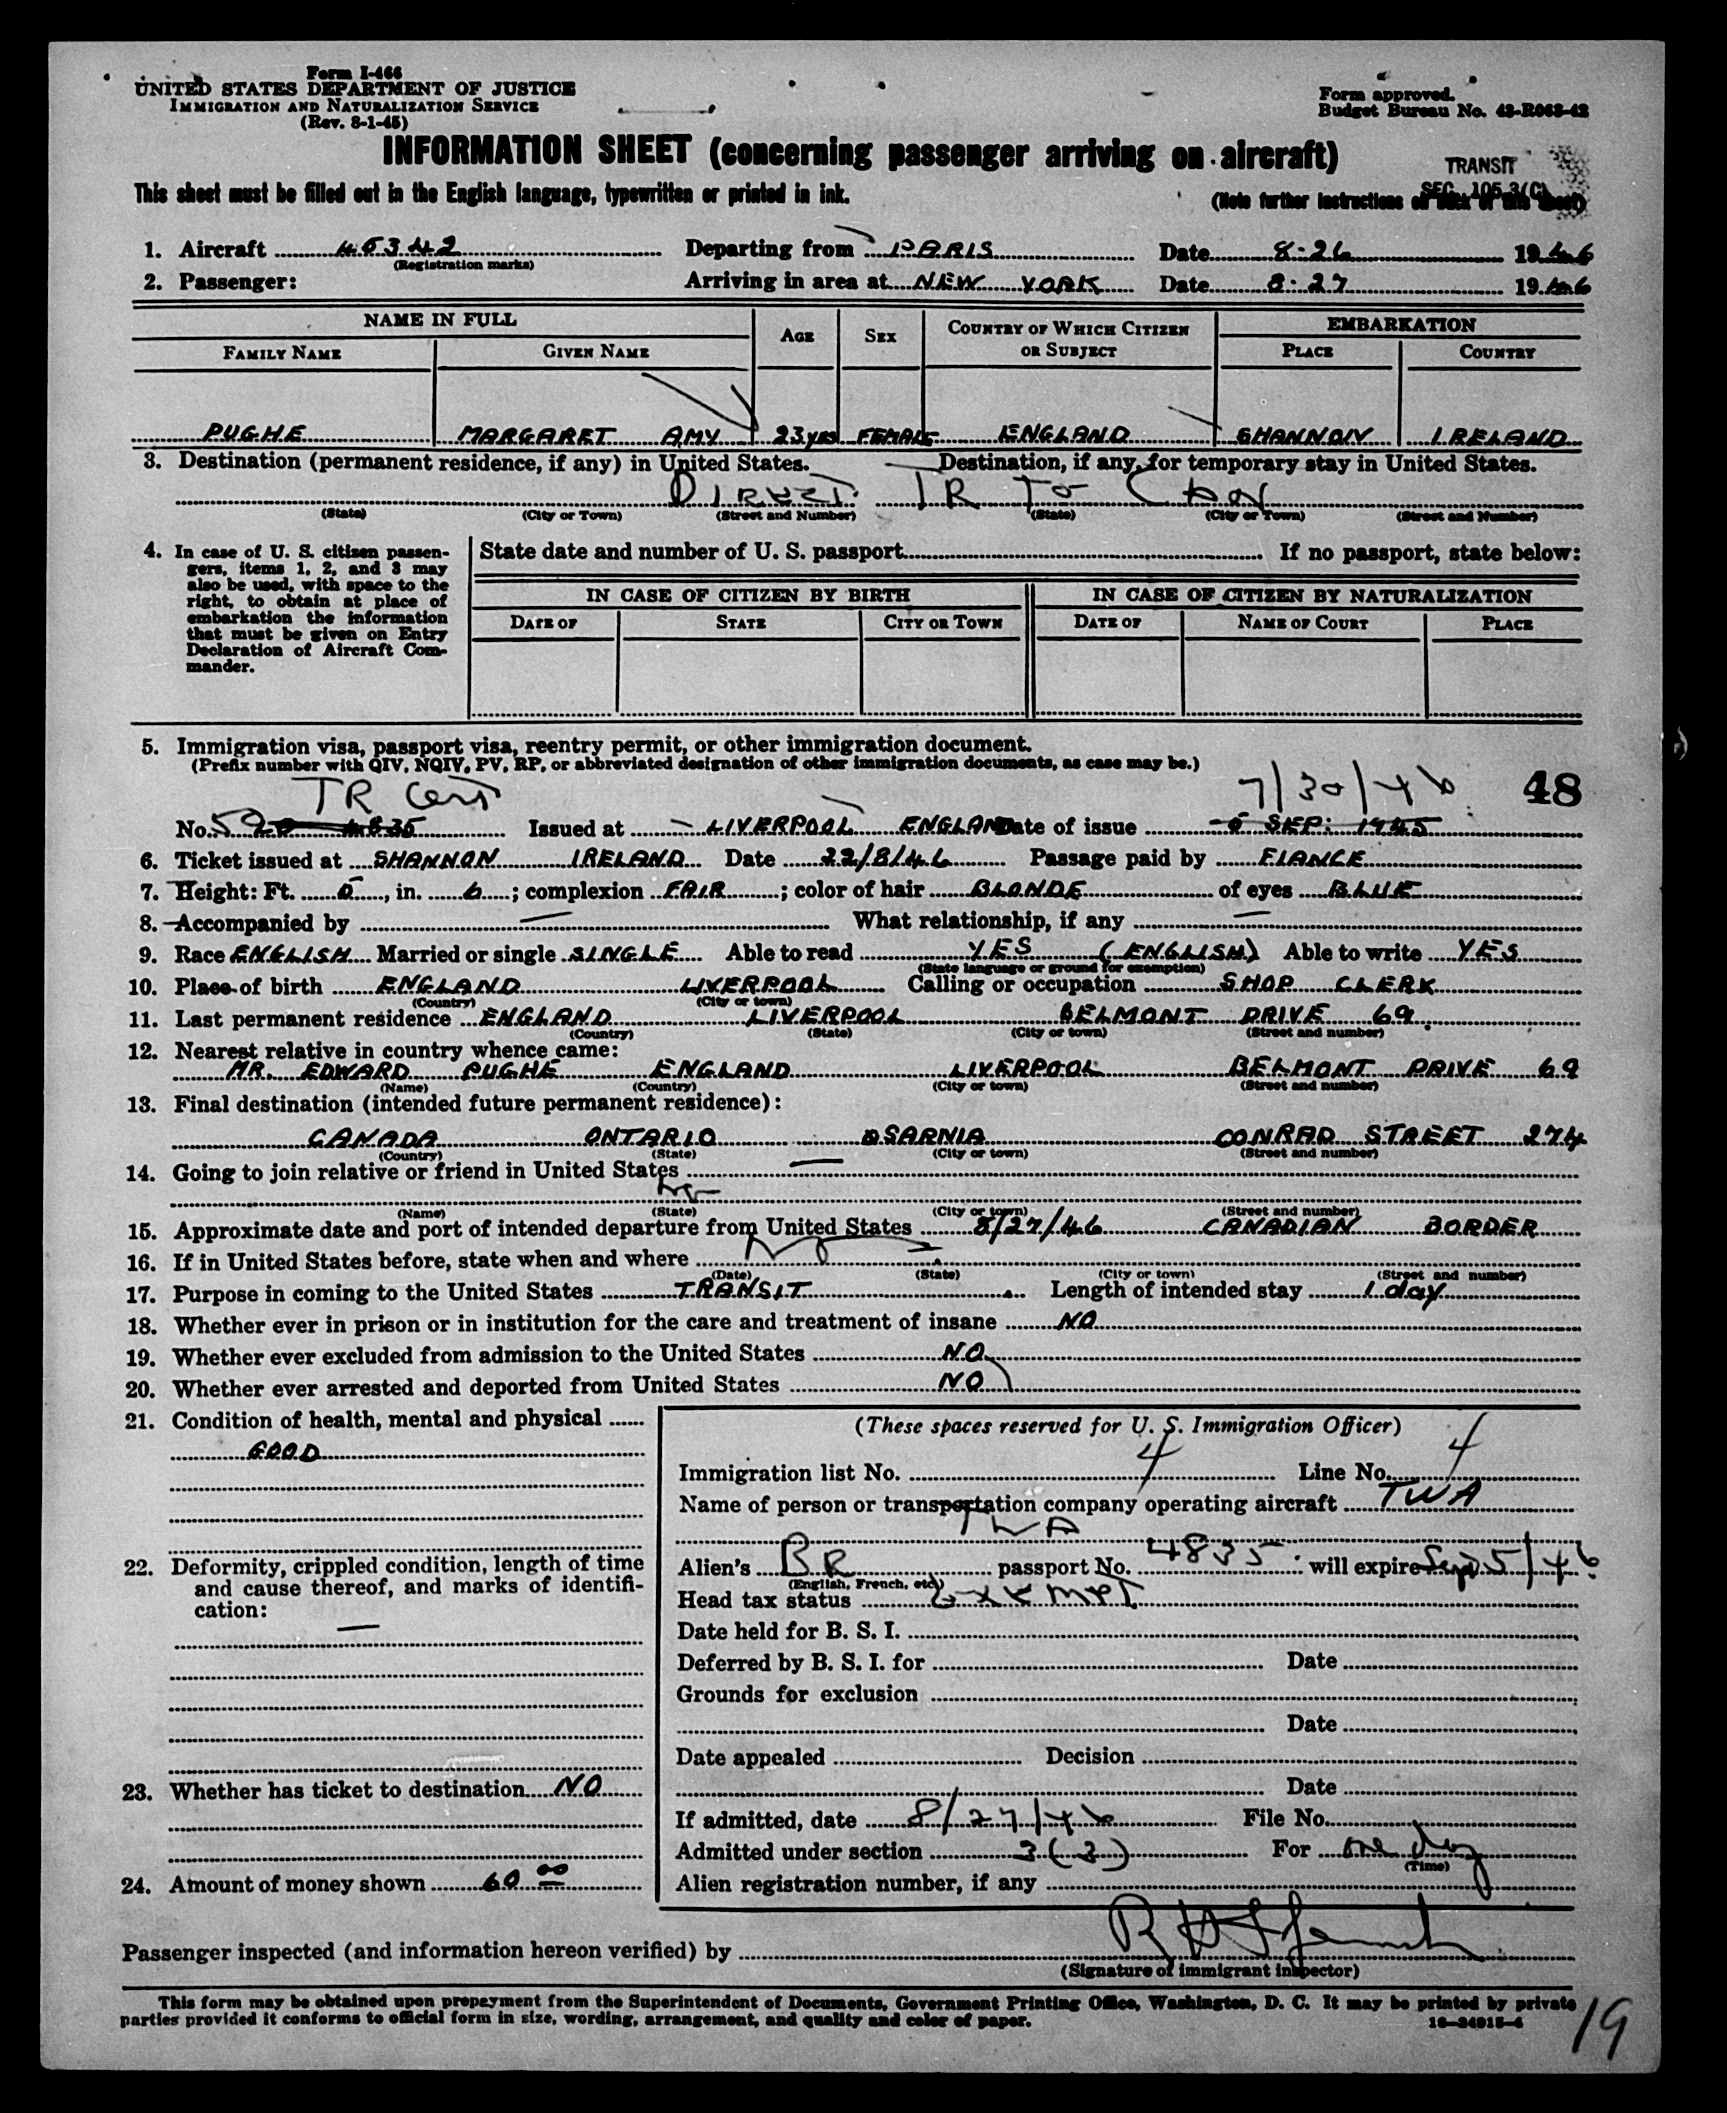 Form I-466
UNITED STATES DEPARTMENT OF JUSTICE
IMMIGRATION AND NATURALIZATION SERVICE
(Rev. 8-1-45)
Form approved.
Budget Bureau No. 43-R063-42
INFORMATION SHEET (concerning passenger arriving on aircraft)
TRANSIT
SEC. 105.3(C)
This sheet must be filled out in the English language, typewritten or printed in ink. (Note further instructions on back of this sheet)
1. Aircraft 45342 Departing from PARIS Date 8-26 1946
(Registration marks)
2. Passenger: Arriving in area at NEW YORK Date 8-27 1946
NAME IN FULL AGE SEX COUNTRY OF WHICH CITIZEN OR SUBJECT EMBARKATION
FAMILY NAME GIVEN NAME PLACE COUNTRY
PUGHE MARGARET AMY 23 yrs FEMALE ENGLAND SHANNON IRELAND
3. Destination (permanent residence, if any) in United States. Destination, if any, for temporary stay in United States.
DIRECT TR TO CAN
(State) (City or Town) (Street and Number) (State) (City or Town) (Street and Number)
4. In case of U. S. citizen passen- State date and number of U. S. passport If no passport, state below:
gers, items 1, 2, and 3 may
also be used, with space to the IN CASE OF CITIZEN BY BIRTH IN CASE OF CITIZEN BY NATURALIZATION
right, to obtain at place of
embarkation the information DATE OF STATE CITY OR TOWN DATE OF NAME OF COURT PLACE
that must be given on Entry
Declaration of Aircraft Com-
mander.
5. Immigration visa, passport visa, reentry permit, or other immigration document.
(Prefix number with QIV, NQIV, PV, RP, or abbreviated designation of other immigration documents, as case may be.)
TR Cert 7/30/46 48
No. 4835 Issued at LIVERPOOL ENGLAND Date of issue 5 SEP: 1945
6. Ticket issued at SHANNON IRELAND Date 22/8/46 Passage paid by FIANCE
7. Height: Ft. 5, in. 6; complexion FAIR; color of hair BLONDE of eyes BLUE
8. Accompanied by — What relationship, if any —
9. Race ENGLISH Married or single SINGLE Able to read YES (ENGLISH) Able to write YES
(State language or ground for exemption)
10. Place of birth ENGLAND LIVERPOOL Calling or occupation SHOP CLERK
(Country) (City or town)
11. Last permanent residence ENGLAND LIVERPOOL BELMONT DRIVE 69.
(Country) (State) (City or town) (Street and number)
12. Nearest relative in country whence came:
MR. EDWARD PUGHE ENGLAND LIVERPOOL BELMONT DRIVE 69
(Name) (Country) (City or town) (Street and number)
13. Final destination (intended future permanent residence):
CANADA ONTARIO SARNIA CONRAD STREET 274
(Country) (State) (City or town) (Street and number)
14. Going to join relative or friend in United States —
no
(Name) (State) (City or town) (Street and number)
15. Approximate date and port of intended departure from United States 8/27/46 CANADIAN BORDER
16. If in United States before, state when and where No
(Date) (State) (City or town) (Street and number)
17. Purpose in coming to the United States TRANSIT Length of intended stay 1 day
18. Whether ever in prison or in institution for the care and treatment of insane NO
19. Whether ever excluded from admission to the United States NO
20. Whether ever arrested and deported from United States NO
21. Condition of health, mental and physical
GOOD
22. Deformity, crippled condition, length of time
and cause thereof, and marks of identifi-
cation:
—
23. Whether has ticket to destination NO
24. Amount of money shown 60 00
(These spaces reserved for U. S. Immigration Officer)
Immigration list No. 4 Line No. 4
Name of person or transportation company operating aircraft TWA
TWA
Alien's BR passport No. 4835 will expire Sep 5/46
(English, French, etc.)
Head tax status Exempt
Date held for B. S. I.
Deferred by B. S. I. for Date
Grounds for exclusion
Date
Date appealed Decision
Date
If admitted, date 8/27/46 File No.
Admitted under section 3(3) For one day
(Time)
Alien registration number, if any
Passenger inspected (and information hereon verified) by
(Signature of immigrant inspector)
This form may be obtained upon prepayment from the Superintendent of Documents, Government Printing Office, Washington, D. C. It may be printed by private
parties provided it conforms to official form in size, wording, arrangement, and quality and color of paper.
16-24915-4
19